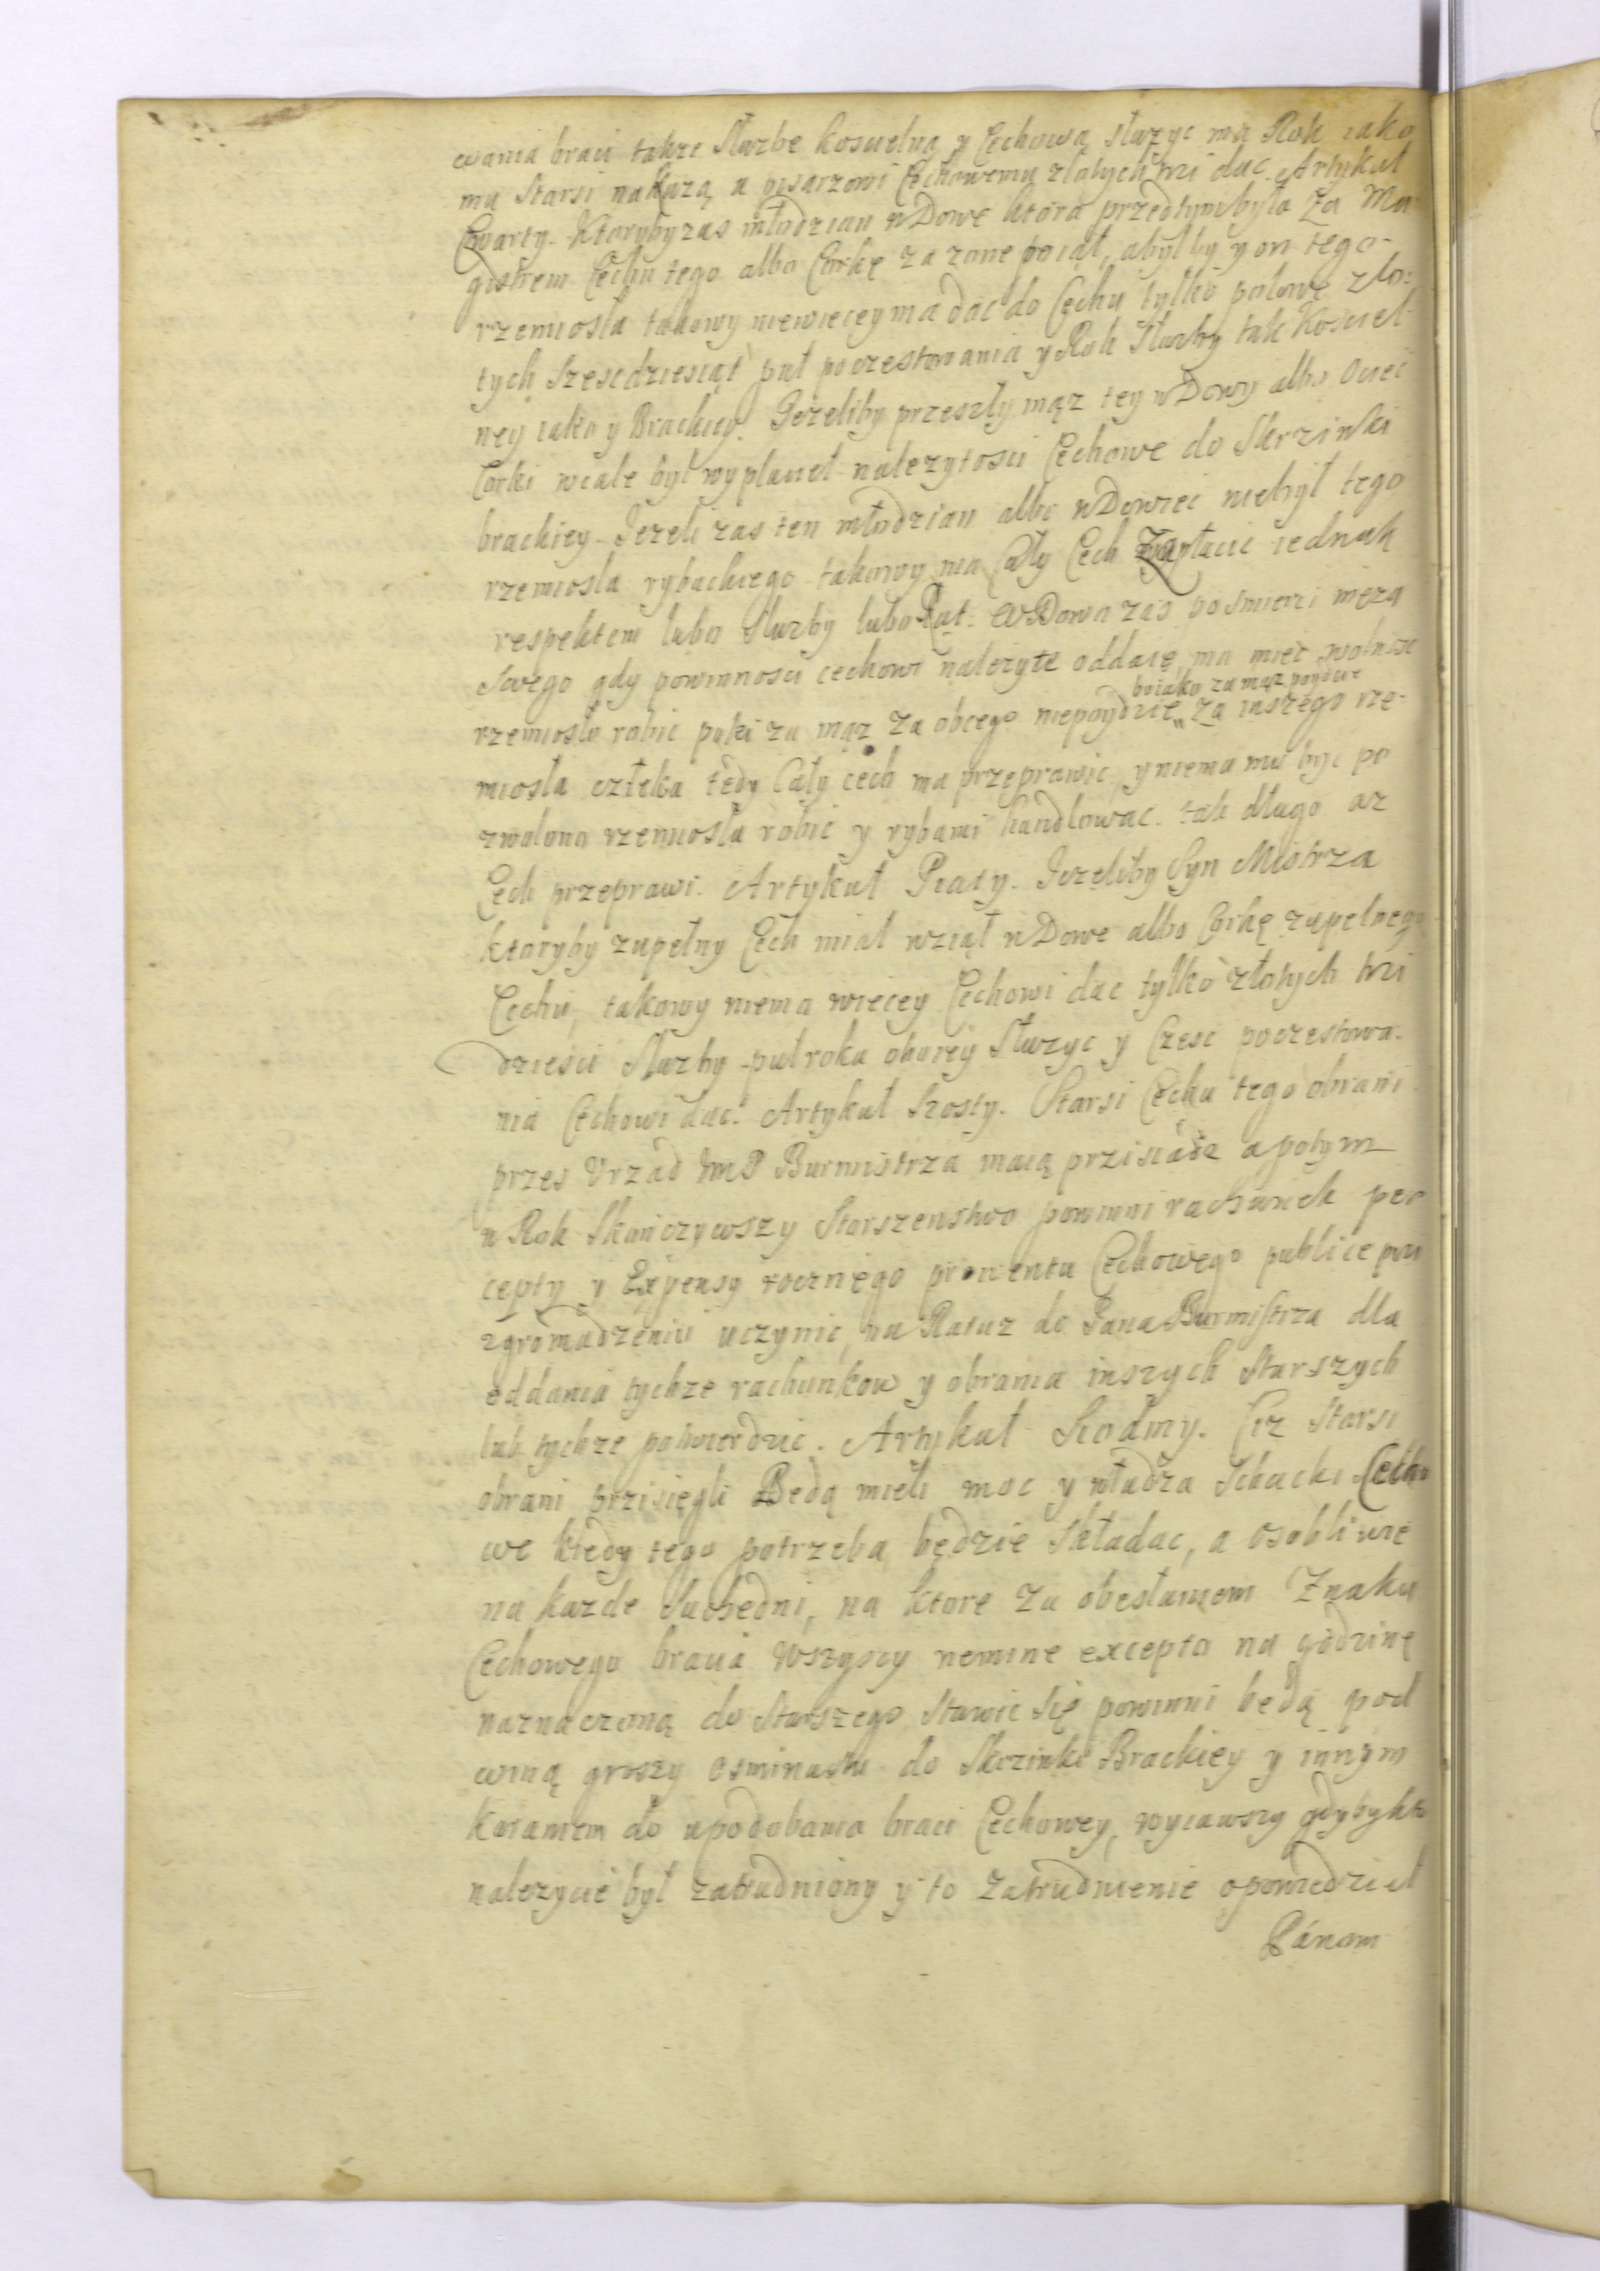 wania braci takze Słuzbe koscielną y Cechową słuzyc ma Rok iako
mu Starsi nakażą, a pisarzowi Cechowemu złotych tri dac. Artykuł
Czwarty. Ktorybyzas młodzian wDowę ktora przedtym była Za Ma
gistrem Cechu tego albo Corkę za zone poiął, abyłby y on tego-
rzemiosła takowy niewięcey ma dac do Cechu tylko połowę zło:
tych szescdziesiąt puł poczestowania y Rok Słuzby tak Koscieł
ney iako y Brackiey. Jeżeliby przeszły mąz tey wDowy albo Ociec
Corki wcale był wypłacieł nalezytosci Cechowe do Skrzinki
brackiey. Jezeli zas ten młodzian albo wDowiec niebył tego
rzemiosła rybackiego takowy ma Cały Cech Zapłacic iednak
respektem lubo Słuzby lubo Rat. WDowa zas po smierci męża
swego gdy powinnosci cechowi należyte oddaię ma miec wolnosc
boiako za mąz poydzie
rzemiosło robic poki za mąz za obcego niepoydzie „ za inszego rze-
miosła człeka tedy Cały cech ma przeprawic, y niema mu byc po
zwolono rzemiosła robic y rybami handlowac. tak długo az
Cech przeprawi. Artykuł Piąty. Jezeliby Syn Mistrza
ktoryby zupełny Cech miał wziął wDowe albo Corkę zupełnego
Cechu, takowy niema więcey Cechowi dac tylko złotych tri
dziesci Słuzby puł roka oboiey Słuzyc y Częsc poczęstowa-
nia Cechowi dac. Artykuł Szosty. Starsi Cechu tego obrani
przes Urząd ImP Burmistrza maią przisiądz a potym
w Rok Skończywszy Starszenstwo powinni rachunek per
cepty y Expensy rocznego prowentu Cechowego publice pri
zgromadzeniu uczynic, na Ratuz do Pana Burmistrza dla
oddania tychze rachunkow y obrania inszych Starszych
lub tychze potwierdzic. Artykuł Siodmy. Ciz Starsi
obrani przisięgli Będą mieli moc y władza Schacki Cecho
we kiedy tego potrzeba będzie Składac, a osobliwie
na kazde Suchedni, na ktore za obesłaniem Znaku
Cechowego bracia wszyscy nemine excepto na godzinę
naznaczoną do Starszego Stawic się powinni będą pod
winą groszy osminastu do Skrzinki Brackiey y innym
karaniem do upodobania braci Cechowey, wyiąwszy gdyby kto
nalezycie był zatrudniony y to zatrudnienie opowiedział
Pánom